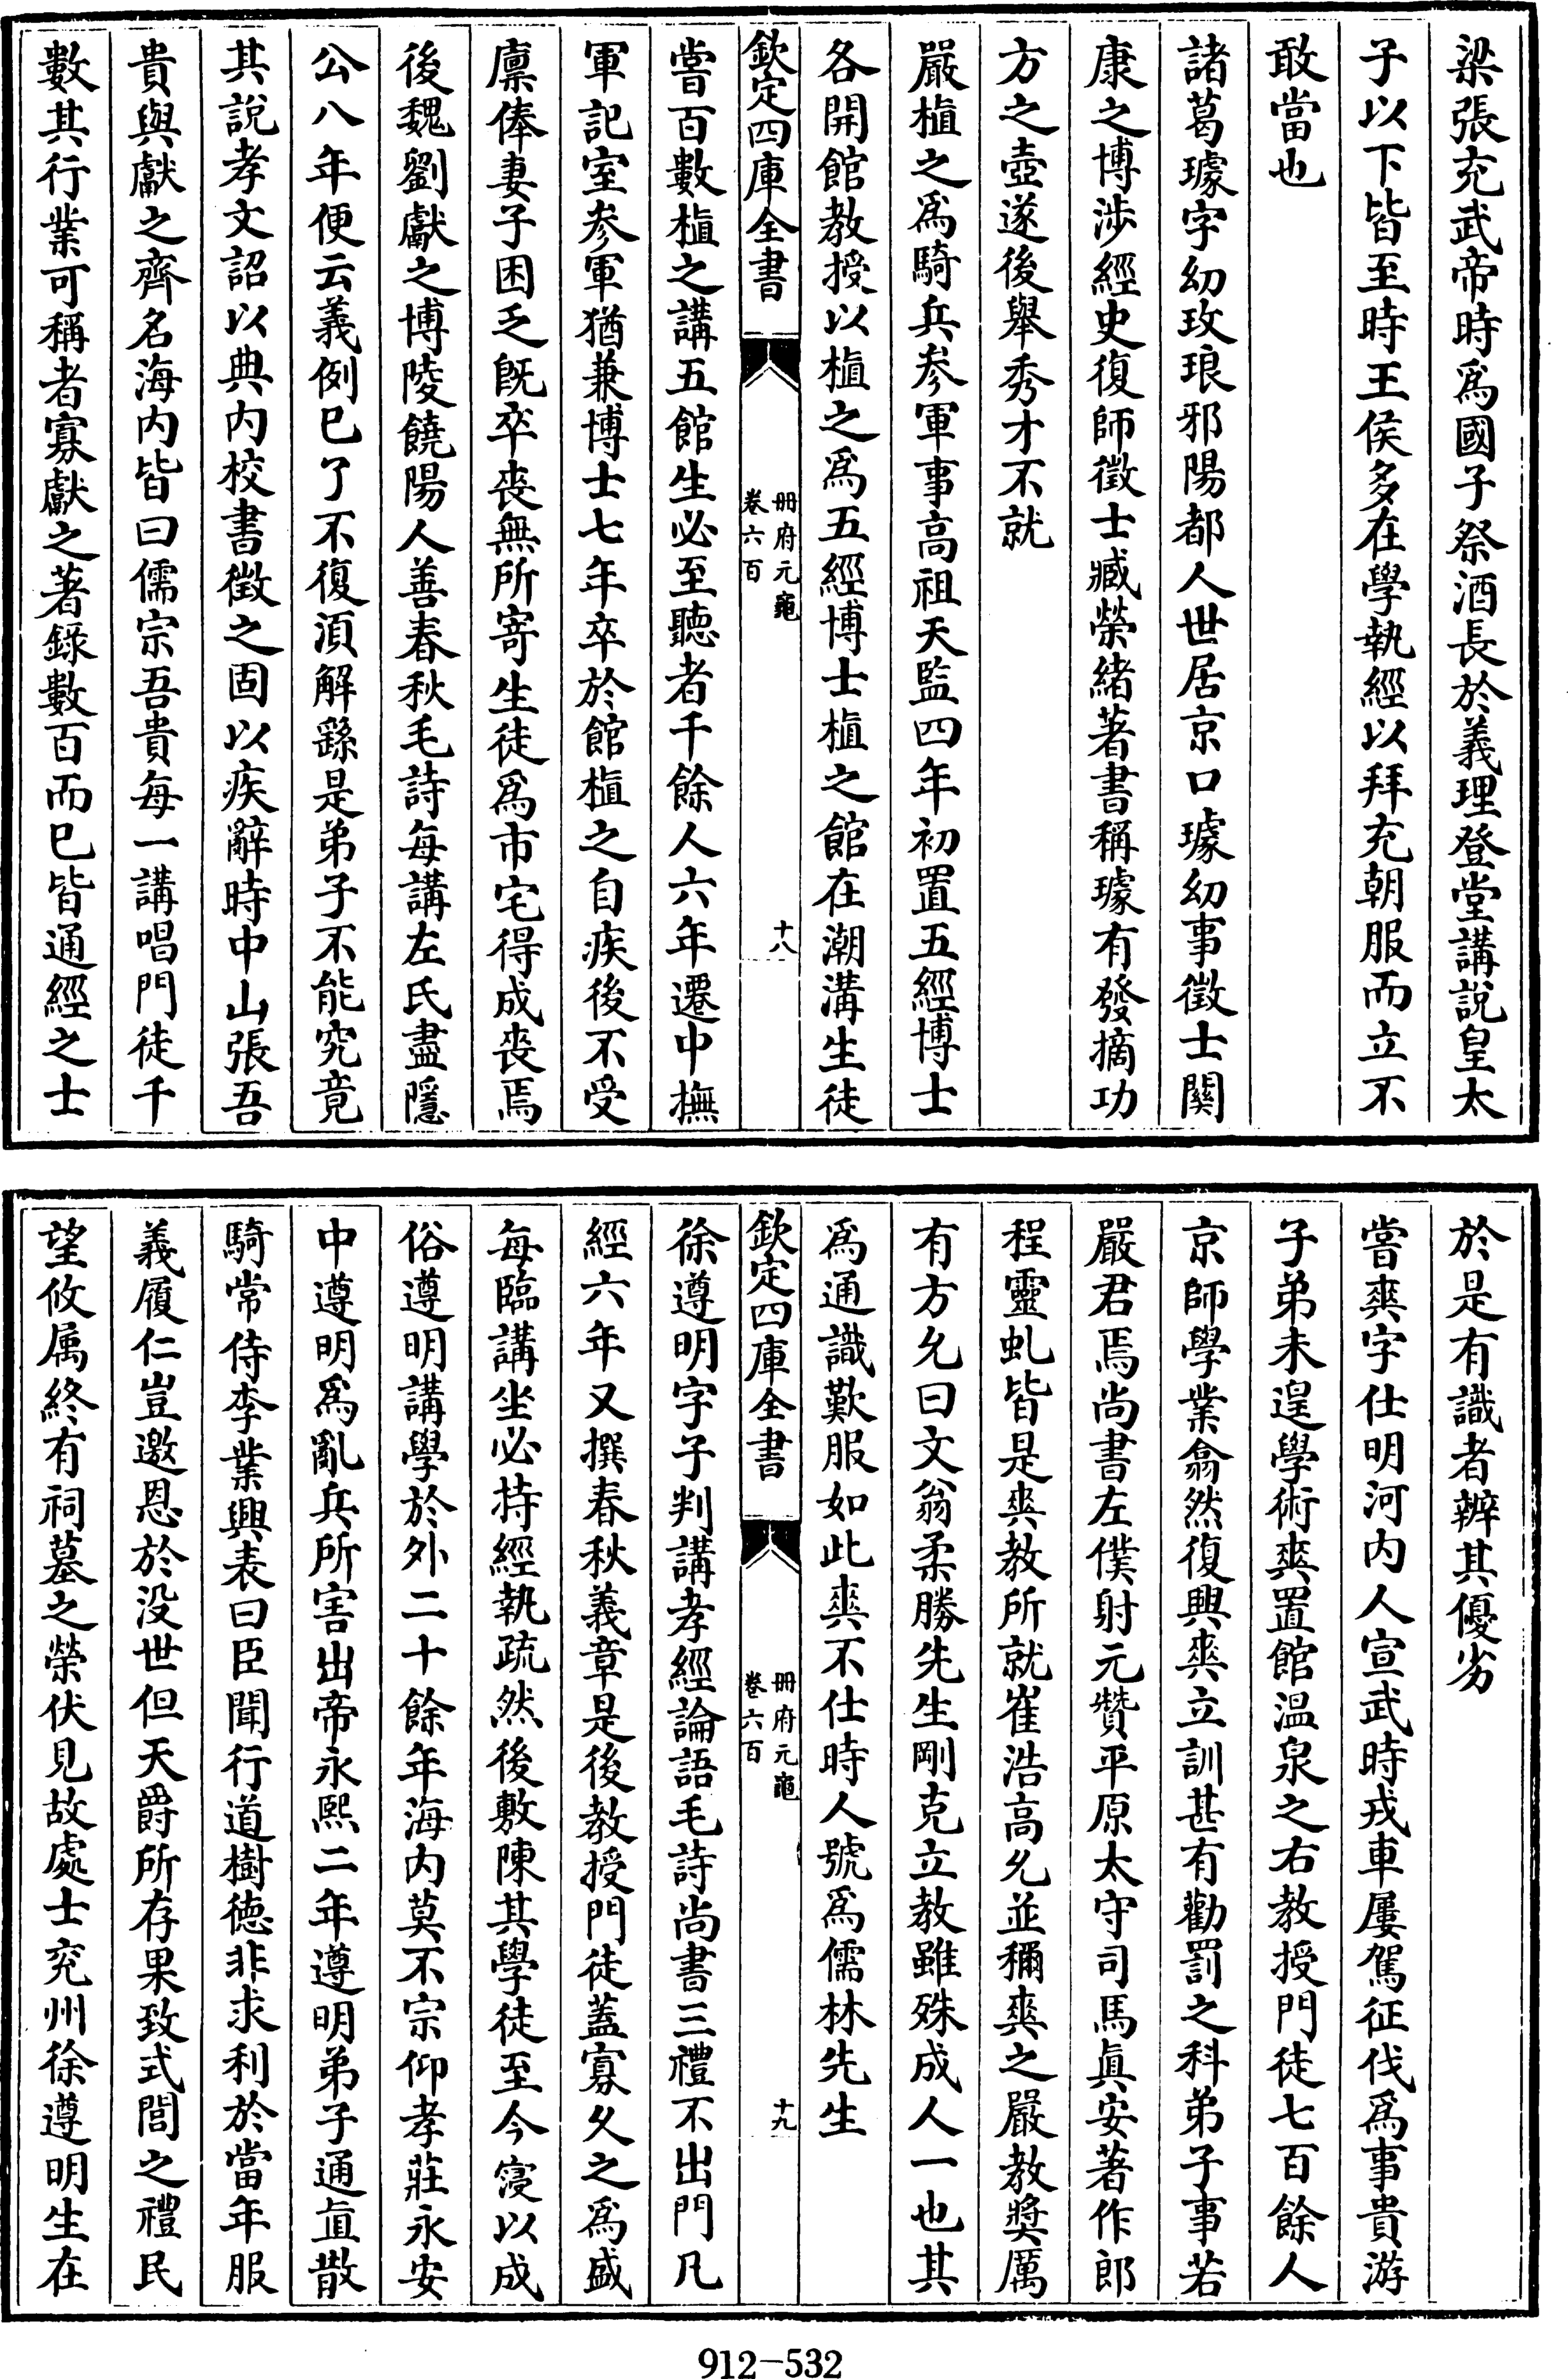 梁張充武帝時爲國子祭酒長於義理登堂講說皇太
子以下皆至時王侯多在學執經以拜充朝服而立不
敢當也
諸葛璩字幼玟琅邪陽都人世居京口璩幼事徵士關
康之博涉經史復師徵士臧榮緒著書稱璩有發擿功
方之壺遂後舉秀才不就
嚴植之爲騎兵參軍事高祖天監四年初置五經博士
各開館教授以植之爲五經博士植之館在潮溝生徒
欽定四庫全書
冊府元龜
卷六百
十八
嘗百數植之講五館生必至聽者千餘人六年遷中撫
軍記室參軍猶兼博士七年卒於館植之自疾後不受
廩俸妻子困乏既卒喪無所寄生徒爲市宅得成喪焉
後魏劉獻之博陵饒陽人善春秋毛詩每講左氏盡隱
公八年便云義例已了不復湏解繇是弟子不能究竟
其說孝文詔以典内校書徵之固以疾辭時中山張吾
貴與獻之齊名海内皆曰儒宗吾貴每一講唱門徒千
數其行業可稱者寡獻之著錄數百而已皆通經之士
於是有識者辨其優劣
嘗爽字仕明河内人宣武時戎車屢駕征伐爲事貴游
子弟未遑學術爽置館温泉之右教授門徒七百餘人
京師學業翕然復興爽立訓甚有勸罰之科弟子事若
嚴君焉尚書左僕射元贊平原太守司馬眞安著作郎
程靈虬皆是爽教所就崔浩高允並稱爽之嚴教奬厲
有方允曰文翁柔勝先生剛克立教雖殊成人一也其
爲通識歎服如此爽不仕時人號爲儒林先生
欽定四庫全書
冊府元龜
卷六百
十九
徐遵明字子判講孝經論語毛詩尚書三禮不出門凡
經六年又撰春秋義章是後教授門徒蓋寡久之爲盛
每臨講坐必持經執疏然後敷陳其學徒至今寖以成
俗遵明講學於外二十餘年海内莫不宗仰孝莊永安
中遵明爲亂兵所害出帝永熙二年遵明弟子通直散
騎常侍李業興表曰臣聞行道樹德非求利於當年服
義履仁豈邀恩於没世但天爵所存果致式閭之禮民
望攸属終有祠墓之榮伏見故處士兖州徐遵明生在
912-532